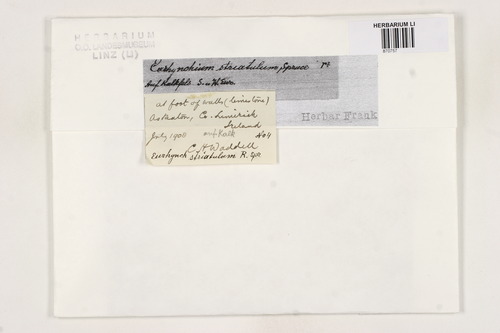 HERBARIUM
O.Ö. LANDESMUSEUM
LINZ (LI)
HERBARIUM LI
Eurhynchium striatulum, Spruce
Auf Kalkfels
Herbar Frank
at foot of walls (limestone)
Askeaton, Co. Limerick
Ireland
July 1908 auf Kalk
C. H. Waddell
Eurhynch striatulum R. Spr.